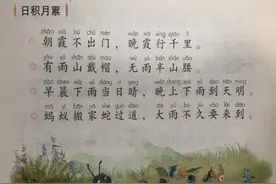 日积月累
zhāo xiá bù chū mén wǎn xiá xíng qiān lǐ
朝霞不出门，晚霞行千里。
yǒu yǔ shān dài mào wú yǔ bàn shān yāo
有雨山戴帽，无雨半山腰。
zǎo chén xià yǔ dāng rì qíng wǎn shang xià yǔ dào tiān míng
早晨下雨当日晴，晚上下雨到天明。
mǎ yǐ bān jiā shé guò dào dà yǔ bù jiǔ yào lái dào
蚂蚁搬家蛇过道，大雨不久要来到。